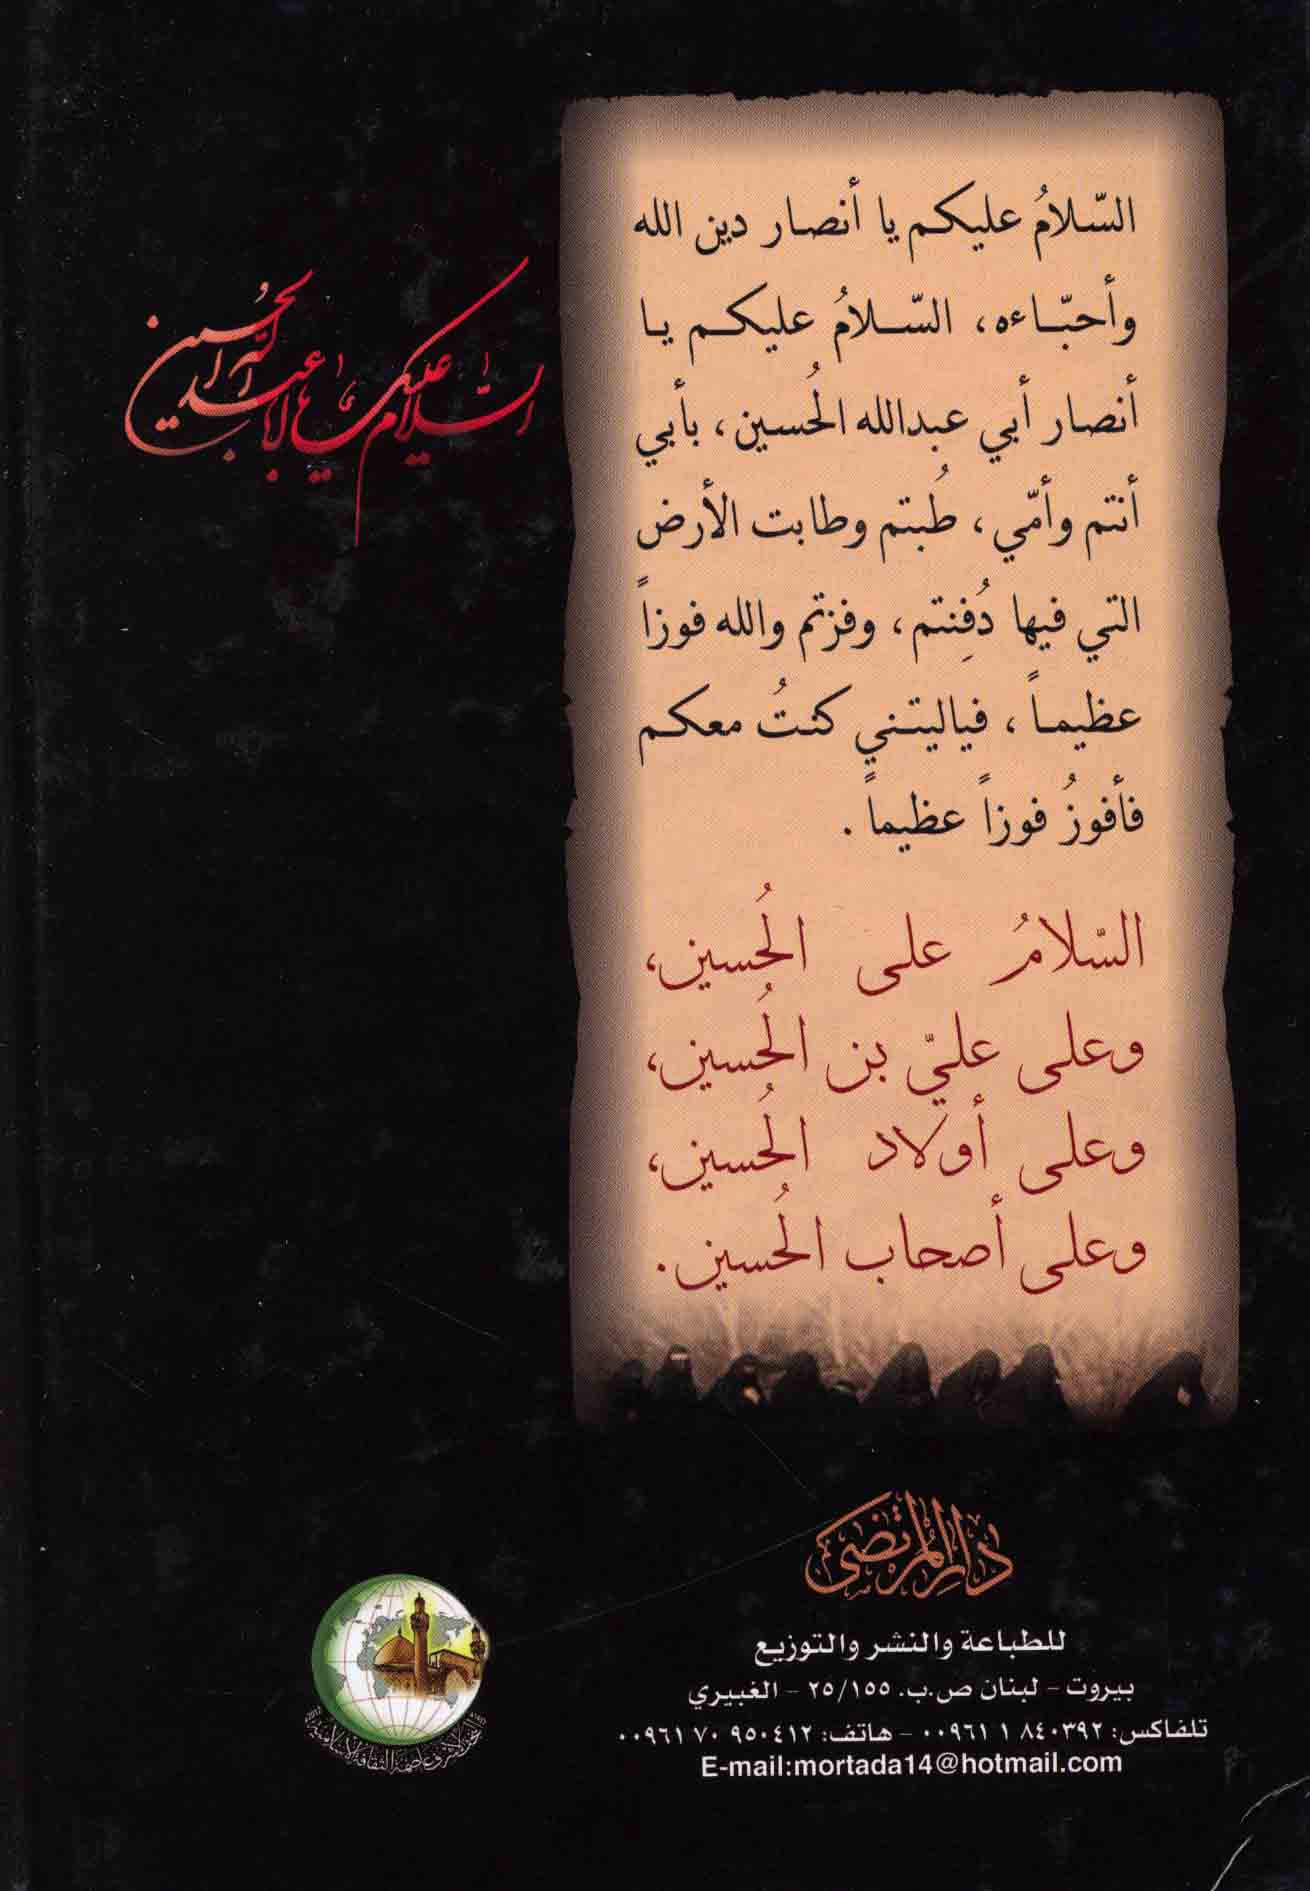 السّلامُ عليكم يا أنصار دين الله
وأحبّاءه، السّلامُ عليكم يا
أنصار أبي عبدالله الحُسين، بأبي
أنتم وأمّي، طُبتم وطابت الأرض
التي فيها دُفِنتم، وفزتم والله فوزاً
عظيماً، فياليتني كنتُ معكم
فأفوزُ فوزاً عظيماً.
السّلامُ على الحُسين،
وعلى عليّ بن الحُسين،
وعلى أولاد الحُسين،
وعلى أصحاب الحُسين.
السّلام عليك يا أبا عبد الله الحُسين
دار المرتضى
للطباعة والنشر والتوزيع
بيروت - لبنان ص.ب. ٢٥/١٥٥ - الغبيري
تلفاكس: ٠٠٩٦١ ١ ٨٤٠٣٩٢ - هاتف: ٠٠٩٦١ ٧٠ ٩٥٠٤١٢
E-mail:mortada14@hotmail.com
النجف الأشرف عاصمة الثقافة الإسلامية